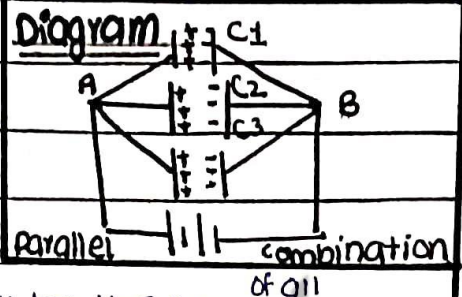 Diagram
C1
A
C2
B
C3
Parallel combination
of all